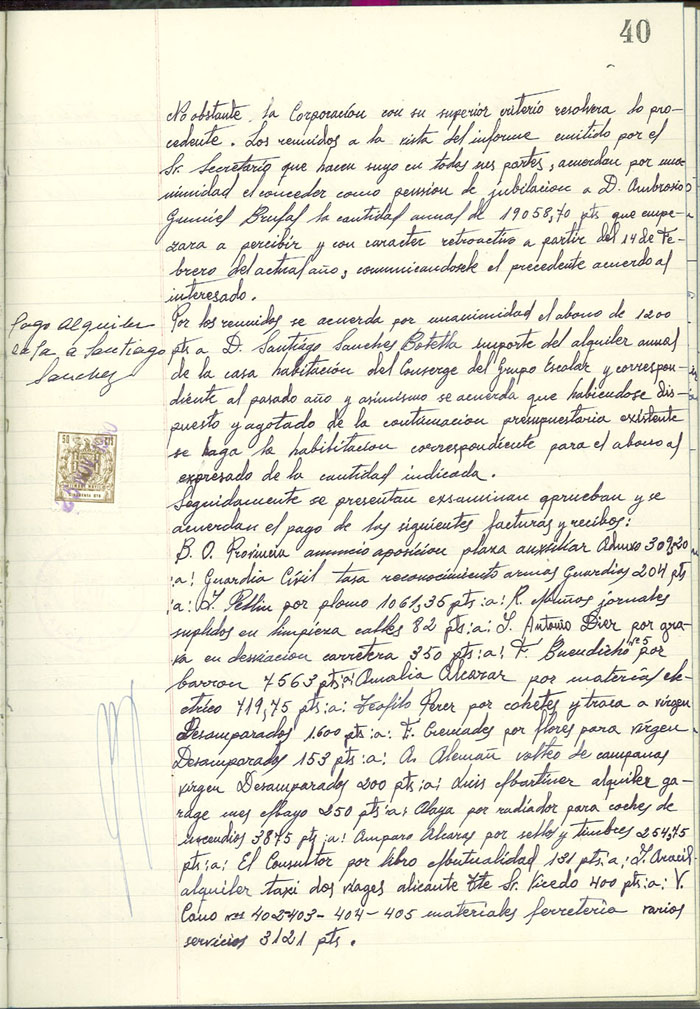 40
No obstante la Corporacion con su superior criterio resolvera lo pro-
cedente. Los reunidos a la vista del informe emitido por el
Sr. Secretario que hacen suyo en todas sus partes, acuerdan por una-
nimidad el conceder como pension de jubilacion a D. Ambrosio
Gumiel Brufal la cantidad anual de 19058,70 pts que empe-
zara a percibir y con caracter retroactivo a partir del 14 de Fe-
brero del actual año, comunicandosele el precedente acuerdo al
interesado.
Pago alquiler
casa a Santiago
Sanchez
Por los reunidos se acuerda por unanimidad el abono de 1200
pts a D. Santiago Sanches Botella importe del alquiler anual
de la casa habitación del Conserge del Grupo Escolar y correspon-
diente al pasado año y asimismo se acuerda que habiendose dis-
puesto y agotado de la consignacion presupuestaria existente
se haga la habilitacion correspondiente para el abono al
expresado de la cantidad indicada.
50 CENTS
Seguidamente se presentan exsaminan aprueban y se
acuerdan el pago de las siguientes facturas y recibos:
B. O. Provincia anuncio oposicion plaza auxiliar Admvo 309,20
:a: Guardia Civil tasa reconocimiento armas Guardias 204 pts
:a: J. Pellin por plomo 1061,35 pts :a: R. Muñoz jornales
suplidos en limpieza calles 82 pts :a: J. Antonio Dier por gra-
va en desviacion carretera 350 pts :a: F. Buendicho por
barron 7563 pts :a: Amalia Alcarar por material elec-
trico 719,75 pts :a: Teofilo Perer por cohetes y traca a virgen
Desamparados 1.600 pts :a: F. Cremades por flores para virgen
Desamparados 153 pts :a: A. Alemañ volteo de campanas
virgen Desamparados 200 pts :a: Luis Martiner alquiler ga-
rage mes Mayo 250 pts :a: Alaya por radiador para coches de
incendios 3875 pts :a: Amparo Alcaras por sellos y timbres 254,75
pts :a: El Consultor por libro Mutualidad 131 pts :a: J. Aracil
alquiler taxi dos viages alicante Tte Sr. Vicedo 400 pts :a: V.
Cano nos 402-403-404-405 materiales ferreteria varios
servicios 3121 pts.